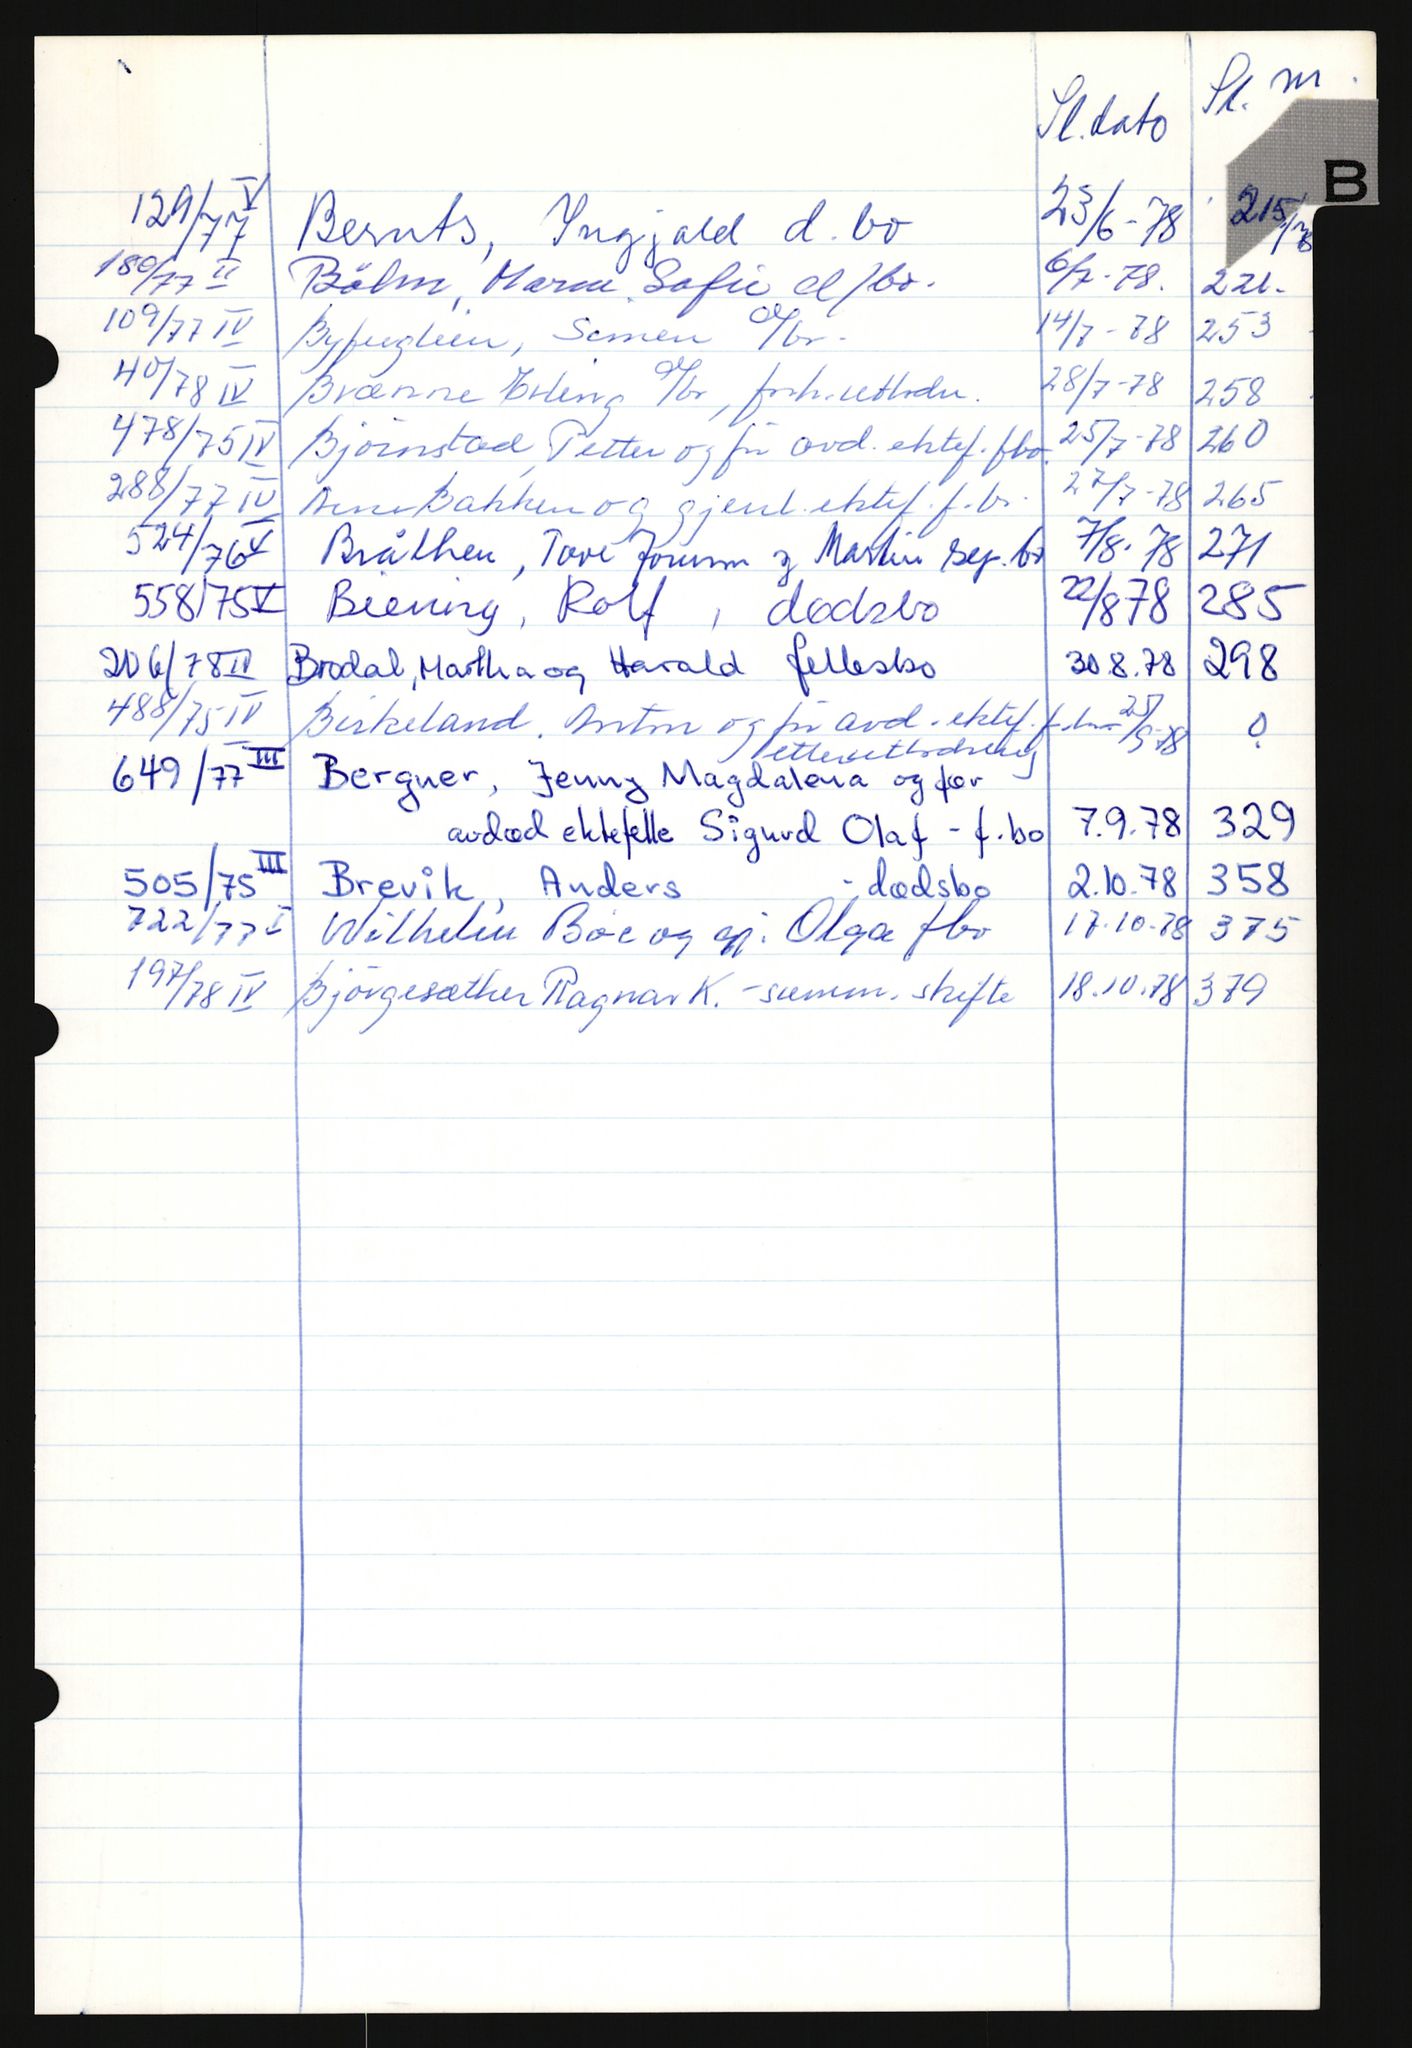 Sl. dato Sl. nr.
B
129/77 V Bernts, Ingjald d. bo 23/6-78 215/78
180/77 II Bölm, Maria Sofie d/bo. 6/7-78. 221.
109/77 IV Byfuglien, Simen d/bo. 14/7-78 253
40/78 IV Brænne Erling d/bo, forh.utlodn. 28/7-78 258
478/75 IV Björnstad, Petter og før avd. ektef. fbo. 25/7-78 260
288/77 IV Arne Bakken og gjenl. ektef. f.bo. 27/7-78 265
524/76 V Bråthen, Tove Jorunn og Martin sep. bo 7/8-78 271
558/75 V Biering, Rolf, dødsbo 22/8 78 285
206/78 IV Brodal, Martha og Harald fellesbo 30.8.78 298
488/75 IV Birkeland, Anton og før avd. ektef. f.bo 25/9-78 ?
etterutlodning
649/77 III Bergner, Jenny Magdalena og før
avdød ektefelle Sigurd Olaf - f.bo 7.9.78 329
505/75 III Brevik, Anders - dødsbo 2.10.78 358
722/77 I Wilhelm Boe og gj. Olga fbo 17.10-78 375
197/78 IV Björgesæther Ragnar K. - summ. skifte 18.10.78 379